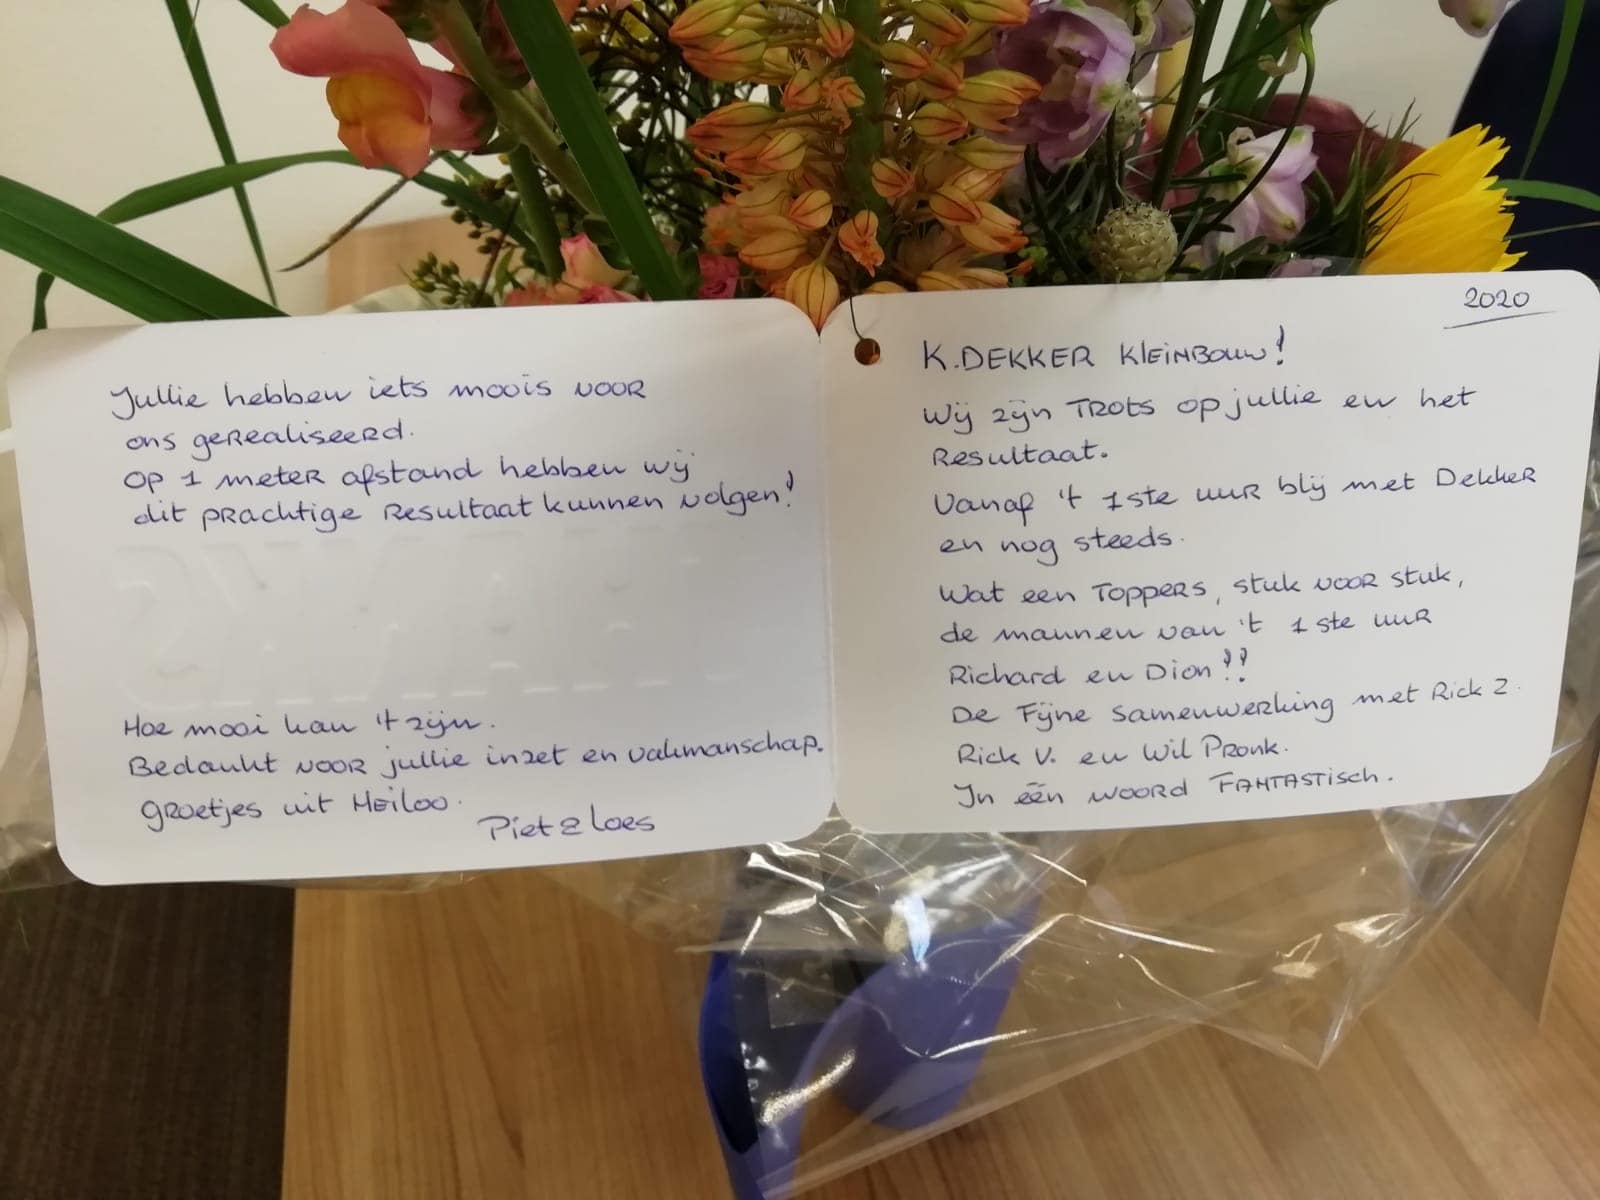 Jullie hebben iets moois voor
ons gerealiseerd.
Op 1 meter afstand hebben wij
dit prachtige Resultaat kunnen volgen!
THANKS
Hoe mooi kan 't zijn.
Bedankt voor jullie inzet en vakmanschap.
Groetjes uit Heiloo.
Piet & Loes
2020
K.DEKKER KLEINBOUW!
Wij zijn TROTS op jullie en het
Resultaat.
Vanaf 't 1ste uur blij met Dekker
en nog steeds.
Wat een Toppers, stuk voor stuk,
de mannen van 't 1ste uur
Richard en Dion!!
De Fijne Samenwerking met Rick Z.
Rick V. en Wil Pronk.
In één woord FANTASTisch.